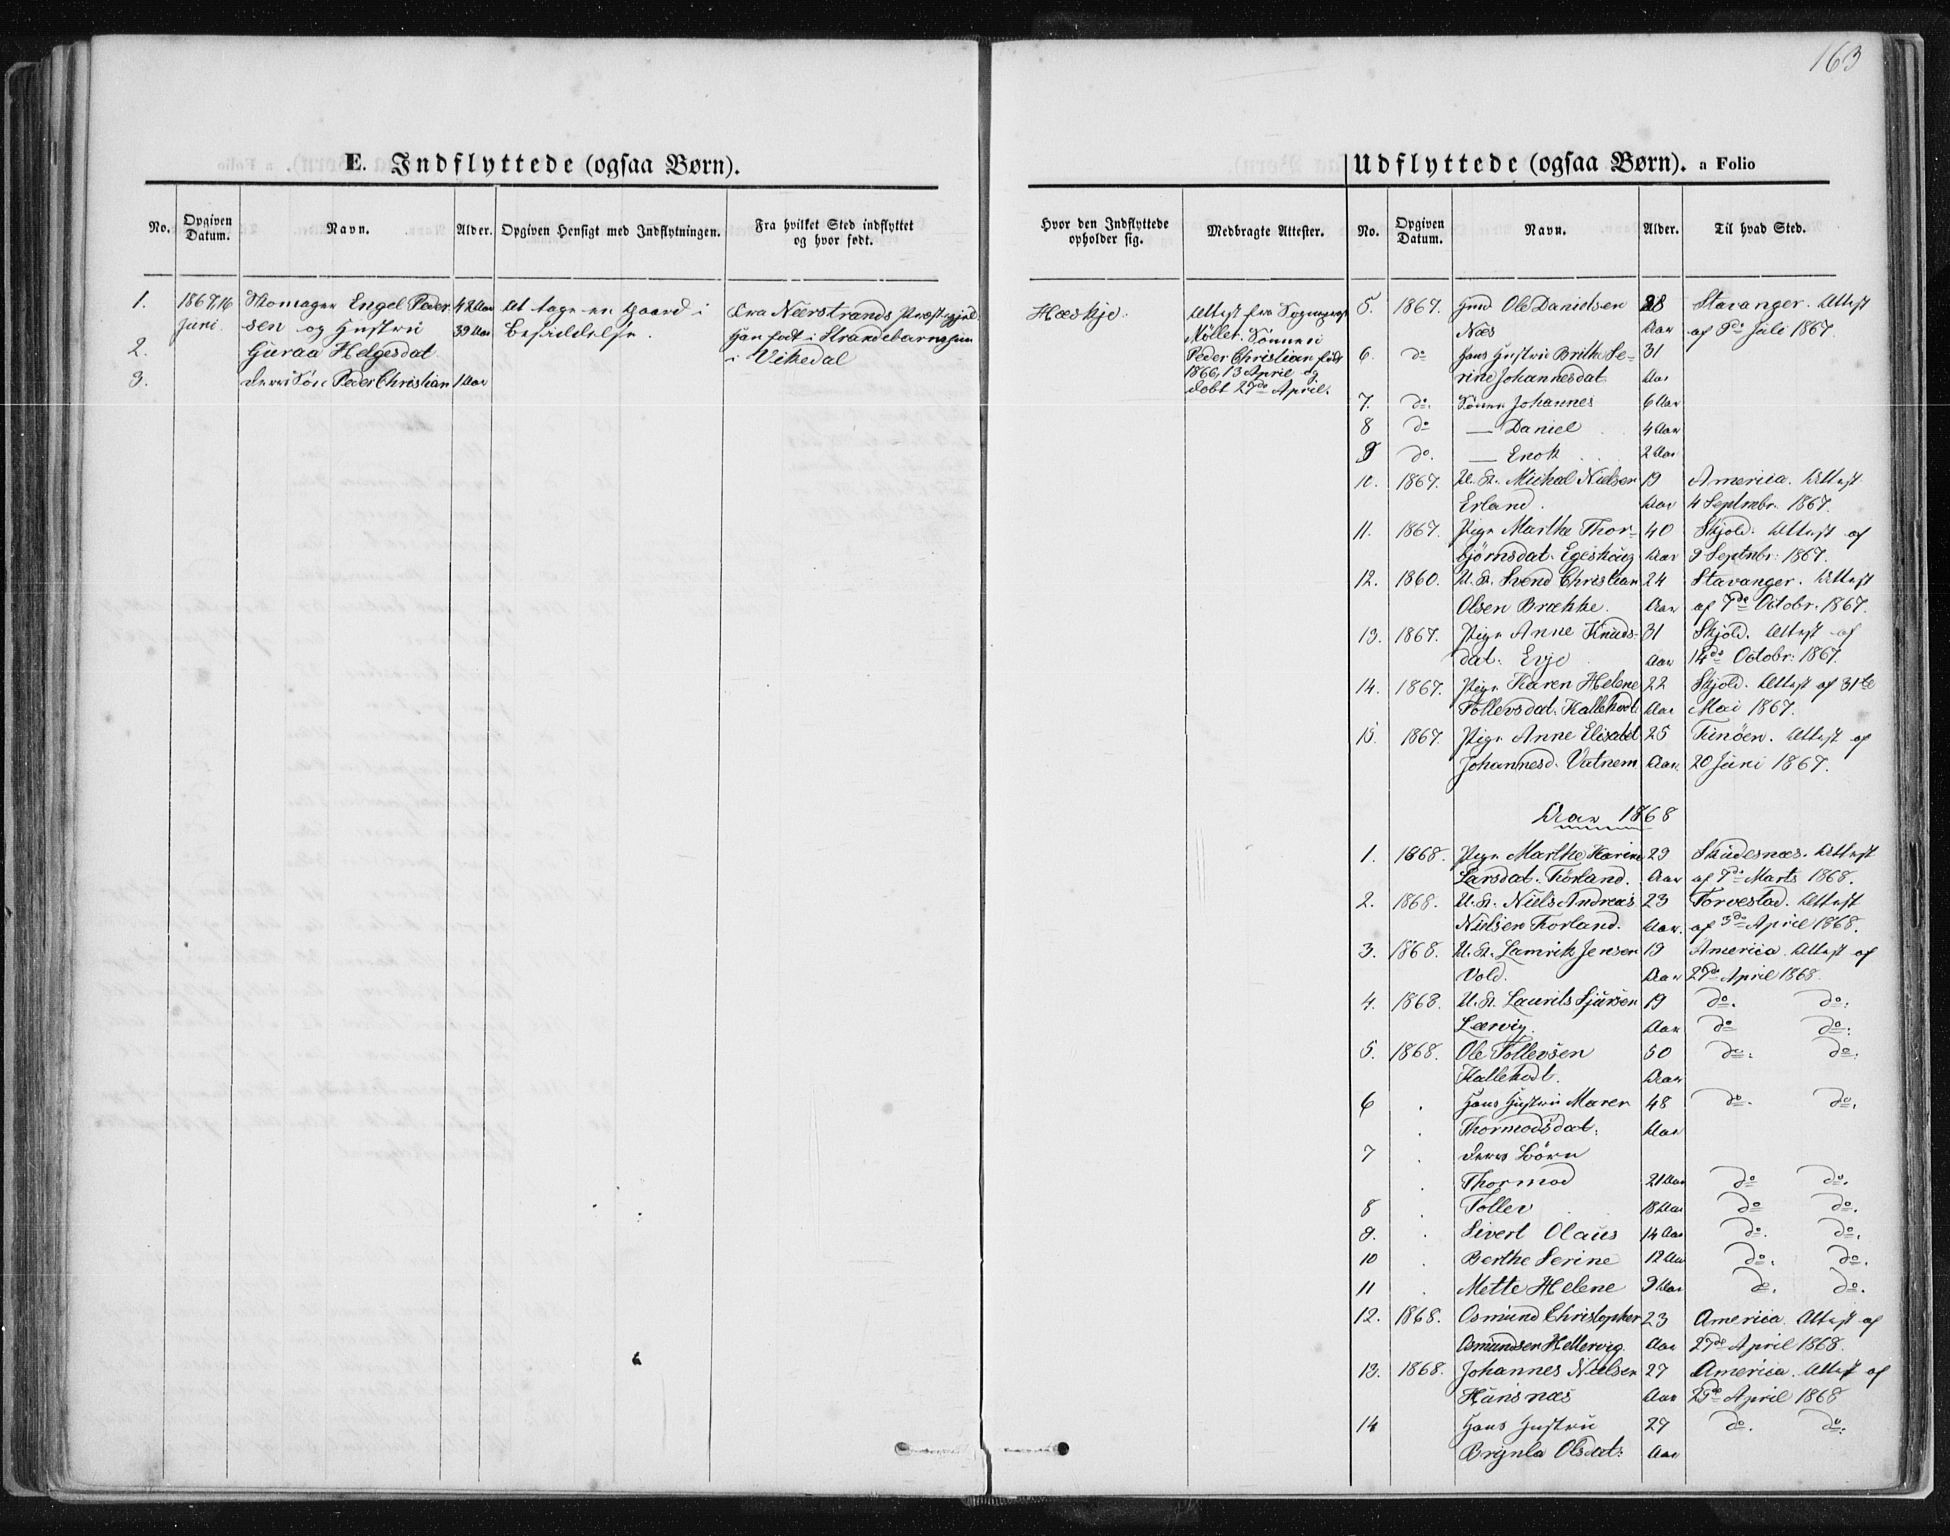 163
E. Indflyttede (ogsaa Børn).
No.
Opgiven Datum.
Navn.
Alder.
Opgiven Hensigt med Indflytningen.
Fra hvilket Sted indflyttet og hvor født.
1. 1867, 16 Engel Peder- 42 Aar At tage en Gaard i Fra Neerstrands Præstegjæld
Juni. sen og Hustru 39 Aar Besiddelse. Han født i Strandebarm, hun
2. Guraa Helgesdat. i Vikedal
3. deres Søn Peder Christian 1 Aar
Udflyttede (ogsaa Børn). a Folio
Hvor den Indflyttede opholder sig.
Medbragte Attester.
No.
Opgiven Datum.
Navn.
Alder.
Til hvad Sted.
Attest fra Sognepræst
Møller. Sønnen
Peder Christian født
1866, 13 April og
døbt 27de April.
5. 1867. Gmd Ole Danielsen 28 Stavanger. Attest
Næs Aar af 9de Juli 1867.
6. do Hans Hustru Brithe Se- 31
rine Johannesdat. Aar
7. do. Sønnen Johannes 6 Aar
8 do — Daniel 4 Aar
9 do. — Enok 2 Aar
10. 1867. U. K. Michal Nielsen 19 America. Attest
Erland. Aar 4 Septembr. 1867.
11. 1867. Pige Marthe Thor- 40 Skjold. Attest af
bjørnsdat. Egeskaug Aar 9 Septmbr: 1867.
12. 1860. U. K. Svend Christian 24 Stavanger. Attest
Olsen Brække. Aar af 7de Octobr. 1867.
13. 1867. Pige Anne Knuds- 31 Skjold. Attest af
dat. Evje Aar 14de Octobr: 1867.
14. 1867. Pige Karen Helene 22 Skjold. Attest af 31te
Tollevsdat. Kallekodt. Aar Mai 1867.
15. 1867. Pige Anne Elisabet 25 Finöen. Attest af
Johannesd. Vatnem Aar. 20 Juni 1867.
Aar 1868
1. 1868. Pige Marthe Karine 29 Skudesnæs. Attest
Larsdat. Førland. Aar af 7de Marts 1868.
2. 1868. U. K. Niels Andreas 23 Torvestad. Attest
Nielsen Førland. Aar. af 3de April 1868.
3. 1868. U. K. Lamrik Jensen 19 America. Attest af
Vold. Aar 27de April 1868.
4. 1868. U. K. Laurits Sjursen 19 do. do.
Lærvig. Aar do do.
5. 1868. Ole Tollevsen 50 do. do.
Kallekodt. Aar
6 . Hans Hustru Maren 48 do. do.
Thormodsdat. Aar
7 . deres Börn
Thormod 21 Aar do do.
8 . Tollev 18 Aar do do.
9. . Sivert Olaus 14 Aar do. do.
10 . Berthe Serine 12 Aar do. do.
11 . Mette Helene 9 Aar do. do.
12. 1868. Osmund Christopher 23 America. Attest af
Osmundsen Hettervig. Aar 27de April 1868.
13. 1868. Johannes Nielsen 27 America. Attest af
Aar 25de April 1868
14 Hans Hustru 29 do. do.
Olsdat: Aar